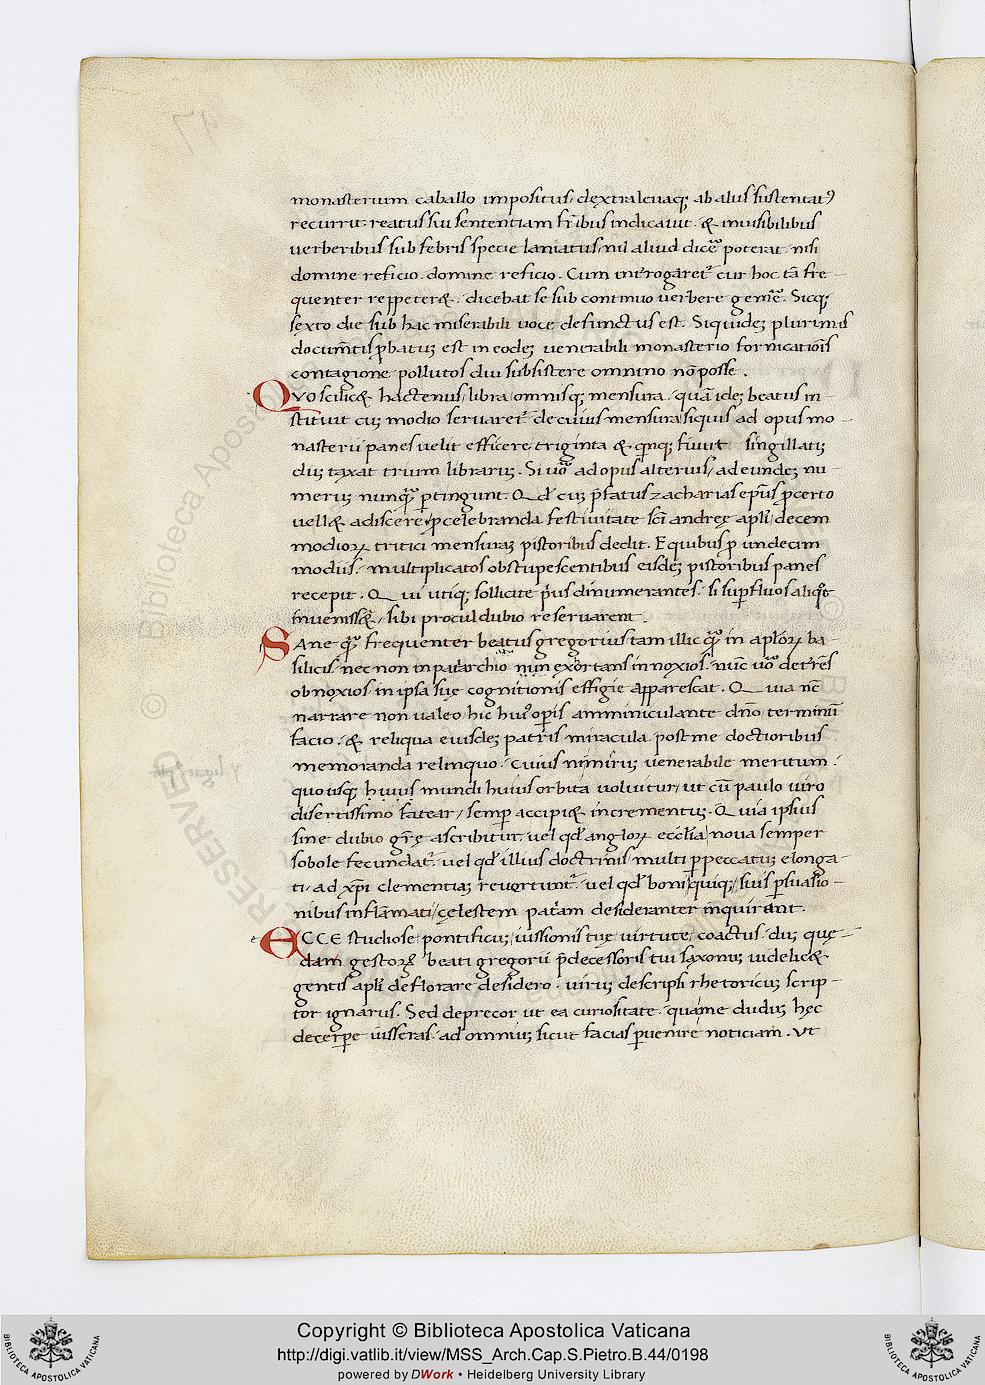 monasterium caballo impositus, dextra levaq; ab aliis sustentat᷒
recurrit. reatus sui sententiam fr̄ibus indicavit. & invisibilibus
verberibus sub febris specie laniatus, nil aliud dicẽ poterat nisi
domine reficio. domine reficio. Cum introgaret᷑ cur hoc tā fre-
quenter reppeter&. dicebat se sub continuo verbere gemẽ. Sicq;
sexto die sub hac miserabili voce defunctus est. Siquidē plurimis
documētis ꝓbatū est in eodē venerabili monasterio fornicatiōis
contagione pollutos diu subsistere omnino nō posse.
Quo scilic& hactenus, libra, omnisq; mensura. quā idē beatus in-
stituit cū modio servaret᷑. de cuius mensura siquis ad opus mo-
nasterii panes velit efficere, triginta & qnq; fiunt singillatī
dū taxat trium librarū. Si vō ad opus alterius, ad eundē nu-
merū nunqᷓ ptingunt. Qd̄ cū p̄fatus zacharias ep̄us ꝓ certo
vell& adiscere, ꝓ celebranda festivitate sc̄i andreę apl̄i, decem
modioꝝ tritici mensurā pistoribus dedit. E quibus ꝓ undecim
modiis. multiplicatos obstupescentibus eisdē pistoribus panes
recepit. Qui utiq; sollicite p̄us dinumerantes. si supfluos aliqͦt
invenissēt, sibi procul dubio reservarent.
Sane qᷓ frequenter beatus gregorius tam illic qᷓ in apl̄oꝝ ba-
silicis necnon in patriarchio nūn exortans innoxios. nūc vō deterrēs
obnoxios in ipsa suę cognitionis effigie apparescat. Quia nc̄
narrare non valeo hic hui᷒ opis amminiculante dn̄o terminū
facio. & reliqua eiusdē patris miracula post me doctioribus
memoranda relinquo. Cuius nimirū venerabile meritum.
quousq; huius mundi huius orbita volvitur, ut cū paulo viro
disertissimo fatear, semp accipi& incrementū. Quia ipsius
sine dubio grę̄ ascribitur. vel qd̄ angloꝝ eccl̄ia nova semper
sobole fecundat᷑. vel qd̄ illius doctrinis multi p peccatū elonga-
ti. ad xp̄i clementiā revertunt᷑. vel qd̄ boni quiq; suis psuasio-
nibus inflāmati, cęlestem patr̄am desideranter inquirunt.
ECCE studiose pontificū, iussionis tuę virtute, coactus. dū quę-
dam gestoꝝ beati gregorii p̄decessoris tui saxonū videlic&
gentis apl̄i deflorare desidero. virū descripsi rhetoricū scrip-
tor ignarus. Sed deprecor ut ea curiositate. qua me dudū hęc
decerpe iusseras. ad omniū sicut facias pvenire noticiam. Ut
Copyright © Biblioteca Apostolica Vaticana
http://digi.vatlib.it/view/MSS_Arch.Cap.S.Pietro.B.44/0198
powered by DWork • Heidelberg University Library